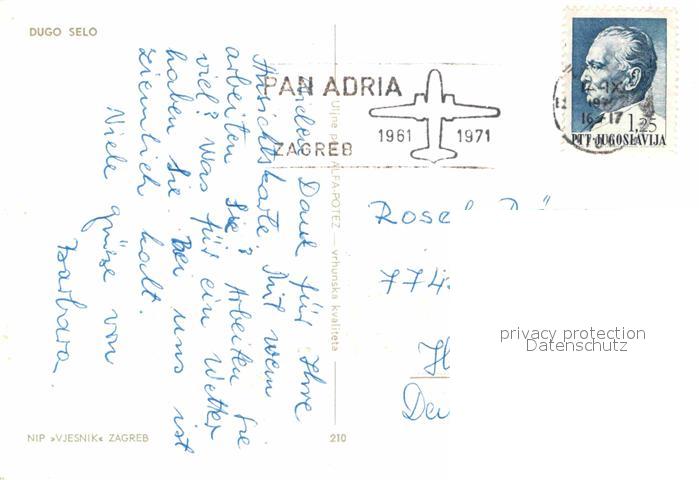 DUGO SELO
PAN ADRIA
1961 1971
ZAGREB
IX
16-17
1,25
PTT-JUGOSLAVIJA
Vielen Dank für Ihre
Ansichtskarte. Mit wem
arbeiten Sie? Arbeiten Sie
viel? Was für ein Wetter
haben Sie. Bei uns ist
ziemlich kalt.
Viele grüße von
Barbara.
Uljne ALFA-POTEZ — vrhunska kvaliteta
Rosel
774
H
Deu
privacy protection
Datenschutz
NIP »VJESNIK« ZAGREB
210